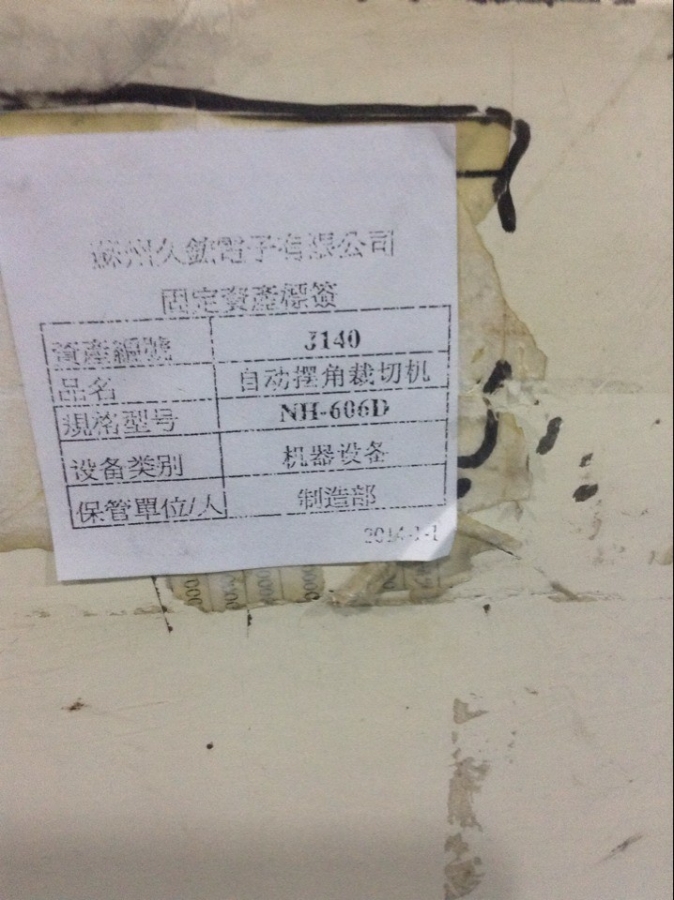 蘇州久鈜電子有限公司
固定資產標簽
資產編號 J140
品名 自动摆角裁切机
規格型号 NH-606D
设备类别 机器设备
保管單位/人 制造部
2014-1-1